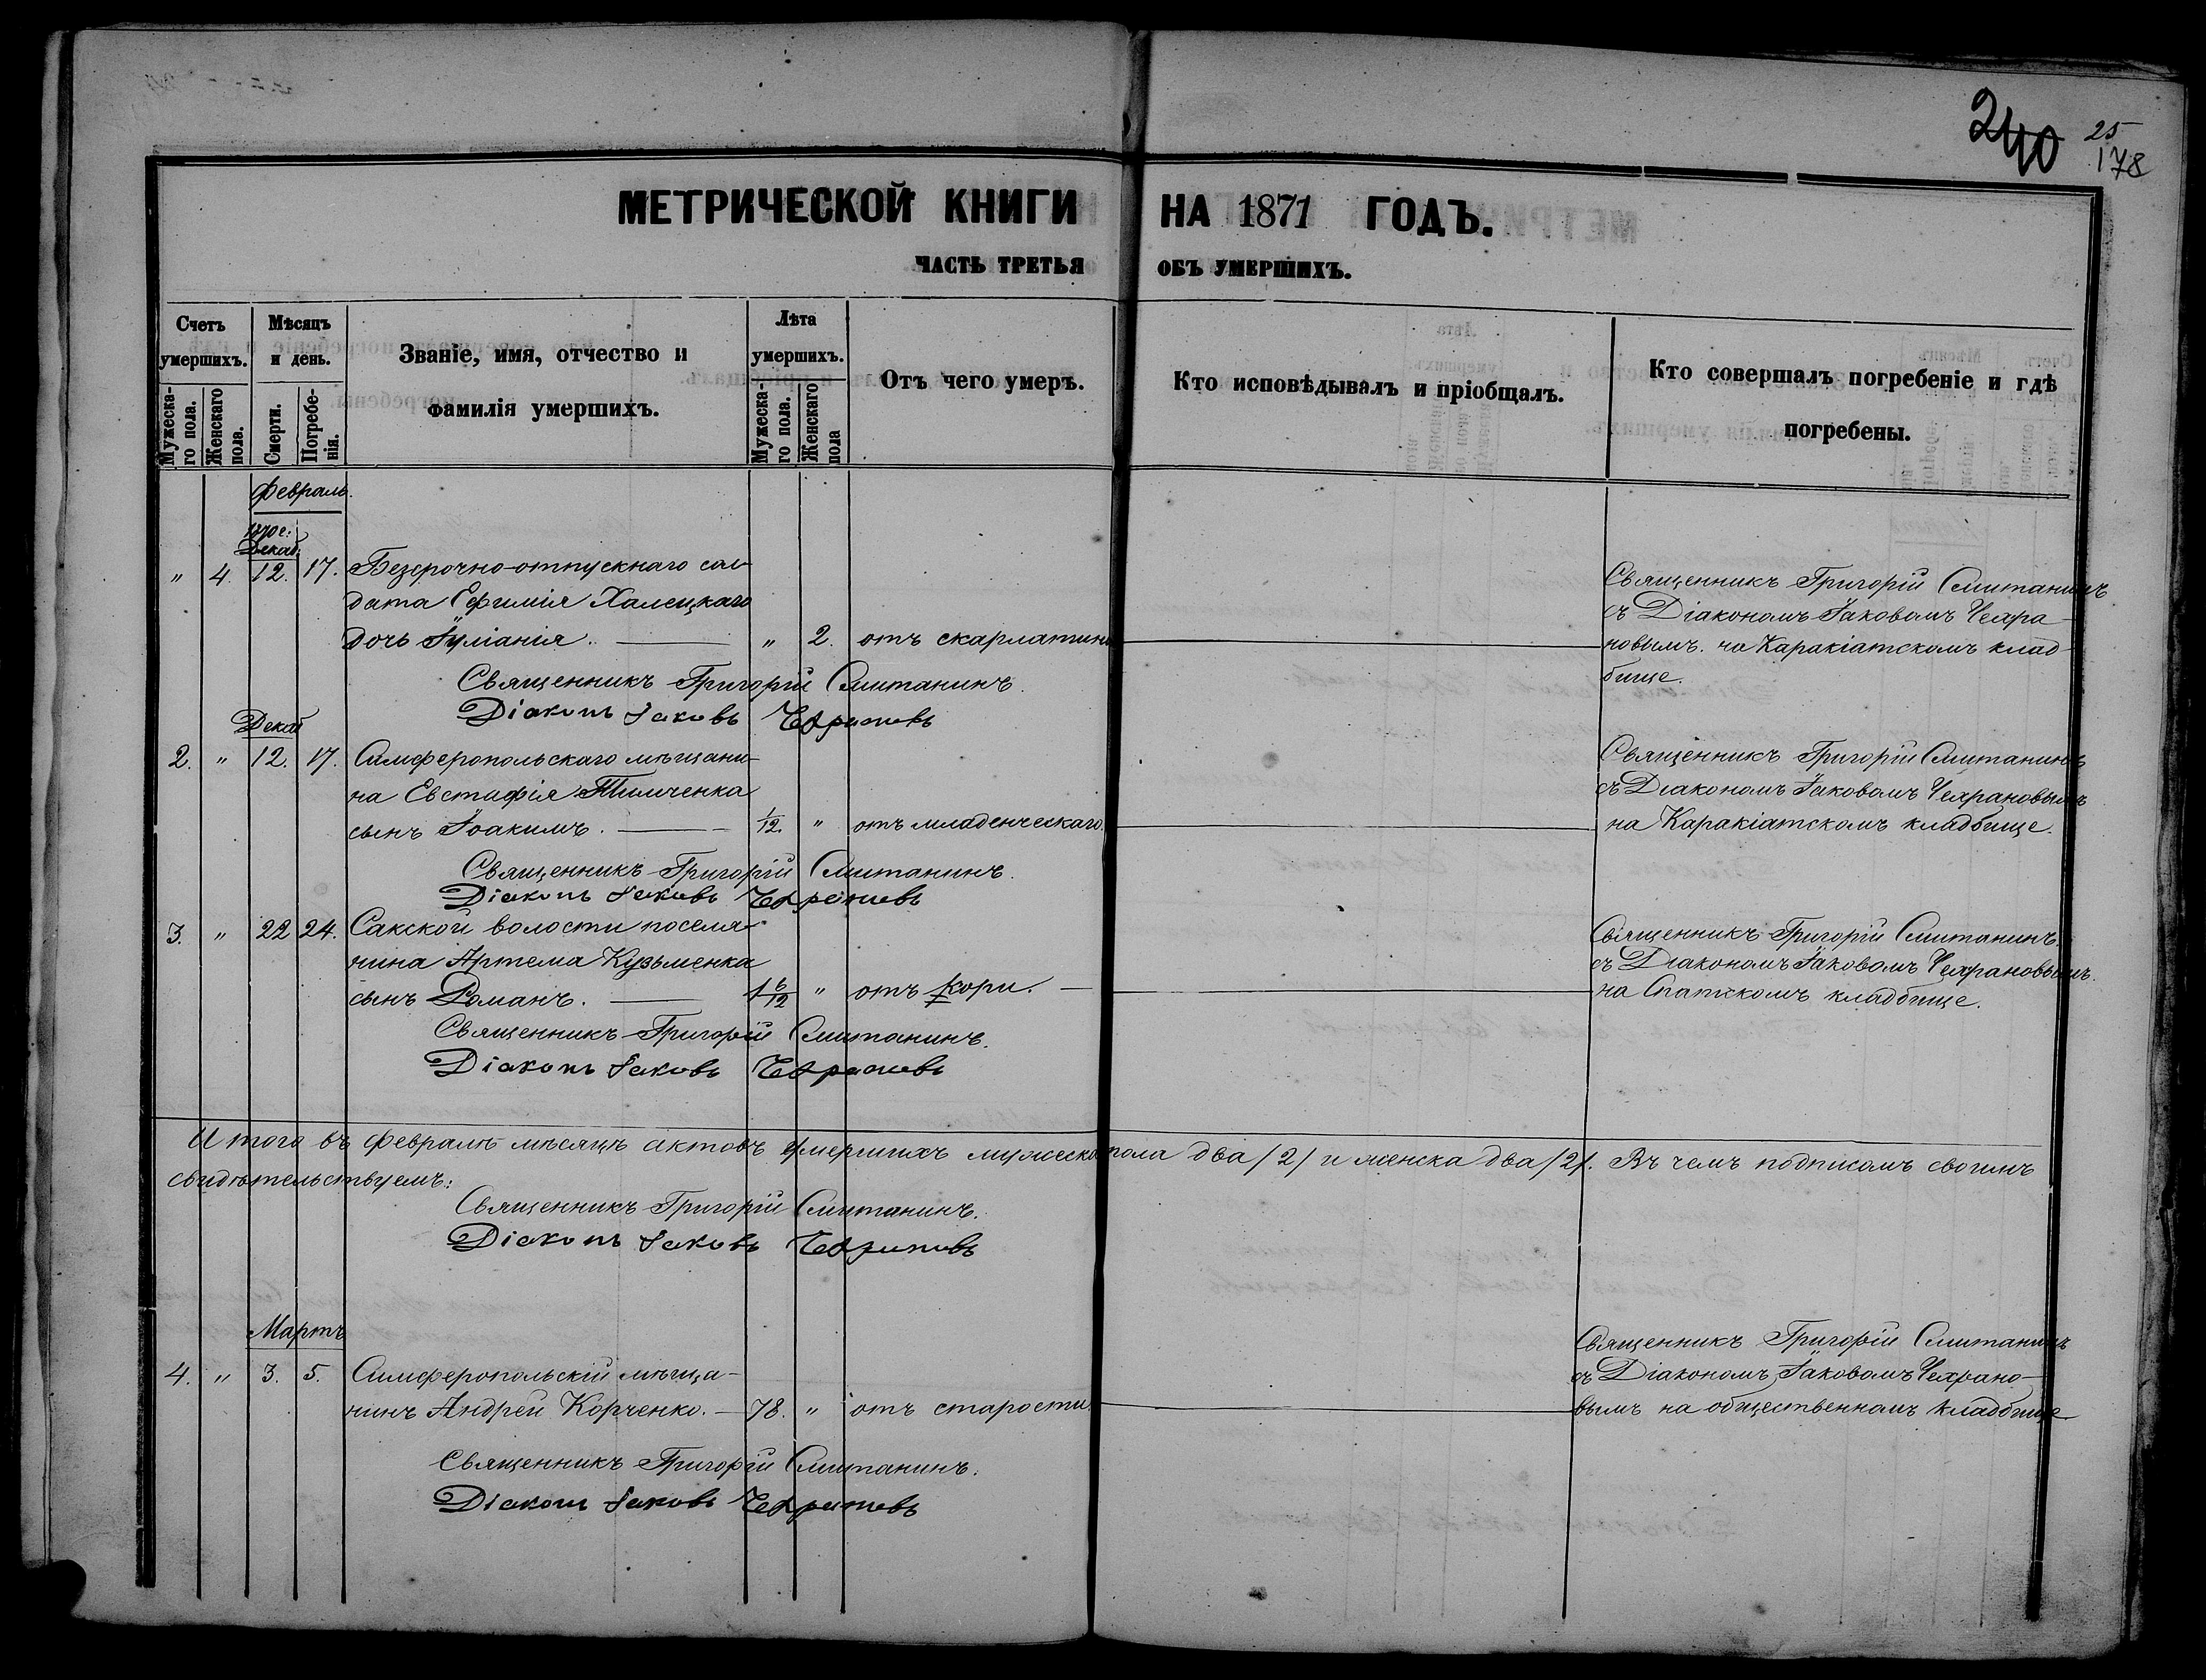 240 25
178
МЕТРИЧЕСКОЙ КНИГИ НА 1871 ГОДЪ.
ЧАСТЬ ТРЕТЬЯ ОБЪ УМЕРШИХЪ.
Счетъ умершихъ.
Мужескаго пола.
Женскаго пола.
Мѣсяцъ и день.
Смерти.
Погребенія.
Званіе, имя, отчество и фамилія умершихъ.
Лѣта умершихъ.
Мужескаго пола.
Женскаго пола
Отъ чего умеръ.
Кто исповѣдывалъ и пріобщалъ.
Кто совершалъ погребеніе и гдѣ погребены.
Февраль.
1870 е:
Декаб:
" 4. 12. 17. Безсрочно-отпускнаго сол-
дата Ефимія Халецкаго
дочь Іуліанія. — " 2. отъ скарлатины
Священникъ Григорій Смитанинъ
съ Діакономъ Іаковомъ Чехра-
новымъ. на Каракіатскомъ клад-
бище.
Священникъ Григорій Смитанинъ.
Діаконъ Іаковъ Чехрановъ
Декаб
2. " 12. 17. Симферопольскаго мѣщани-
на Евстафія Тимченка
сынъ Іоакимъ. — 1/12. " отъ младенческаго.
Священникъ Григорій Смитанинъ
съ Діакономъ Іаковомъ Чехрановымъ
на Каракіатскомъ кладбище.
Священникъ Григорій Смитанинъ.
Діаконъ Іаковъ Чехрановъ
3. " 22 24. Сакской волости поселя-
нина Артема Кузьменка
сынъ Романъ. — 1 6/12 " отъ кори. —
Священникъ Григорій Смитанинъ.
съ Діакономъ Іаковомъ Чехрановымъ.
на Спатскомъ кладбище.
Священникъ Григорій Смитанинъ.
Діаконъ Іаковъ Чехрановъ
Итого въ Февралѣ мѣсяцѣ актовъ умершихъ мужеска пола два /2/ и женска два /2/. Въ чемъ подписомъ своимъ
свидѣтельствуемъ:
Священникъ Григорій Смитанинъ.
Діаконъ Іаковъ Чехрановъ
Мартъ
4. " 3. 5. Симферопольскій мѣща-
нинъ Андрей Корченко. — 78. " отъ старости.
Священникъ Григорій Смитанинъ
съ Діакономъ Іаковомъ Чехрано-
вымъ на общественномъ кладбище
Священникъ Григорій Смитанинъ.
Діаконъ Іаковъ Чехрановъ